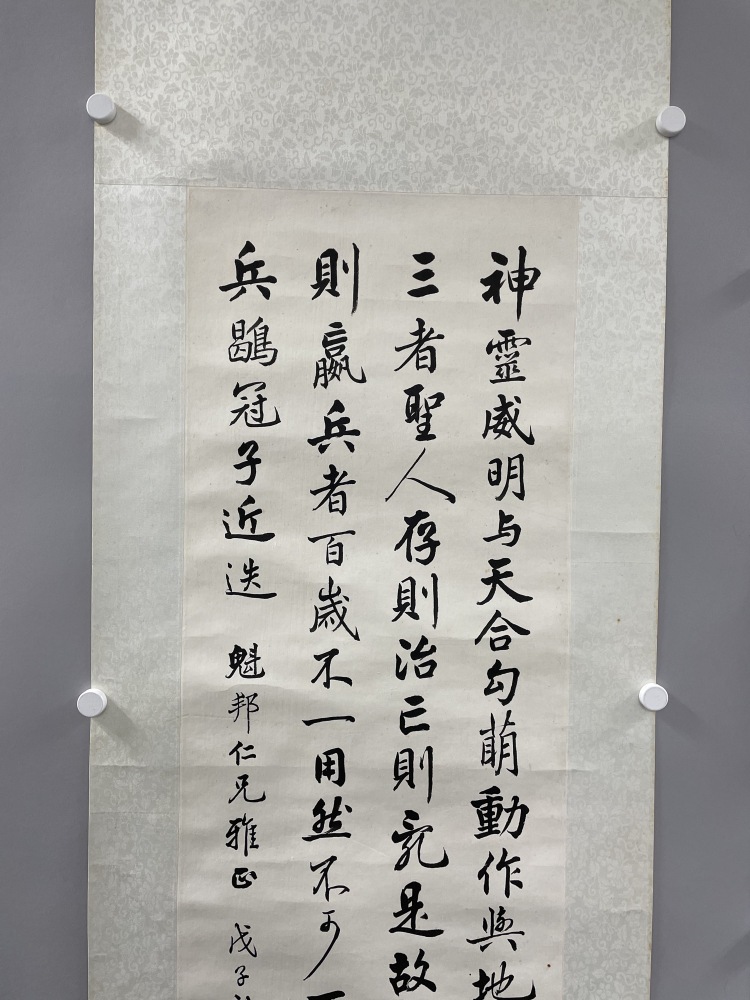 神靈威明与天合勾萌動作與地
三者聖人存則治亡則亂是故
則嬴兵者百歲不一用然不可一
兵鶡冠子近迭 魁邦仁兄雅正 戊子